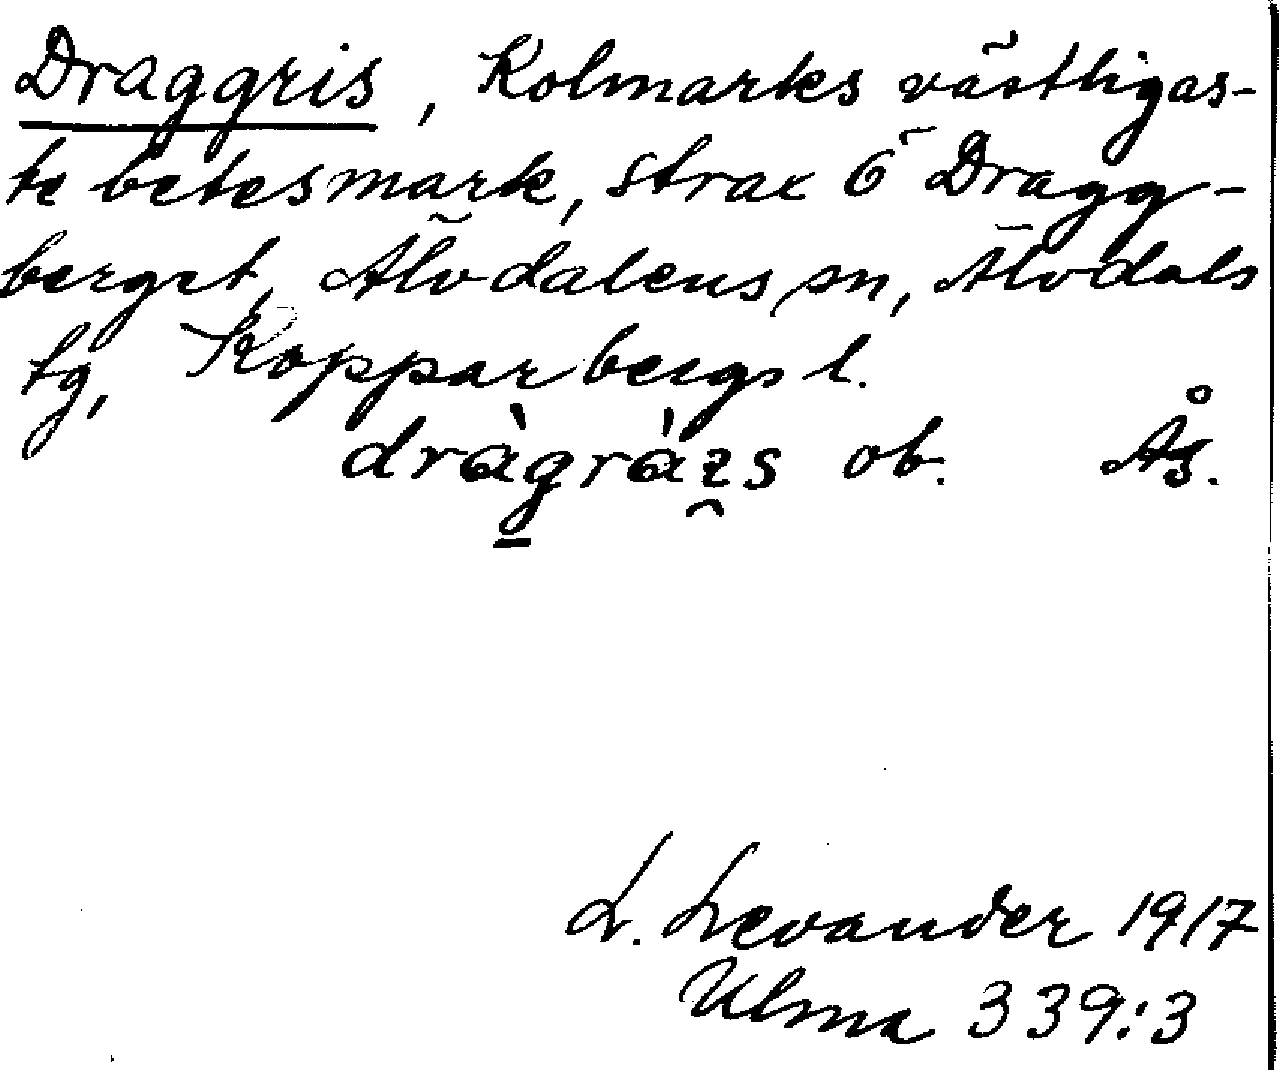 Draggris, Kolmarks västligas-
te betesmark, strax Ö Dragg-
berget, Älvdalens sn, Älvdals
tg, Kopparbergs l.
dràgràıs ob. Ås.
L. Levander 1917
Ulma 339:3